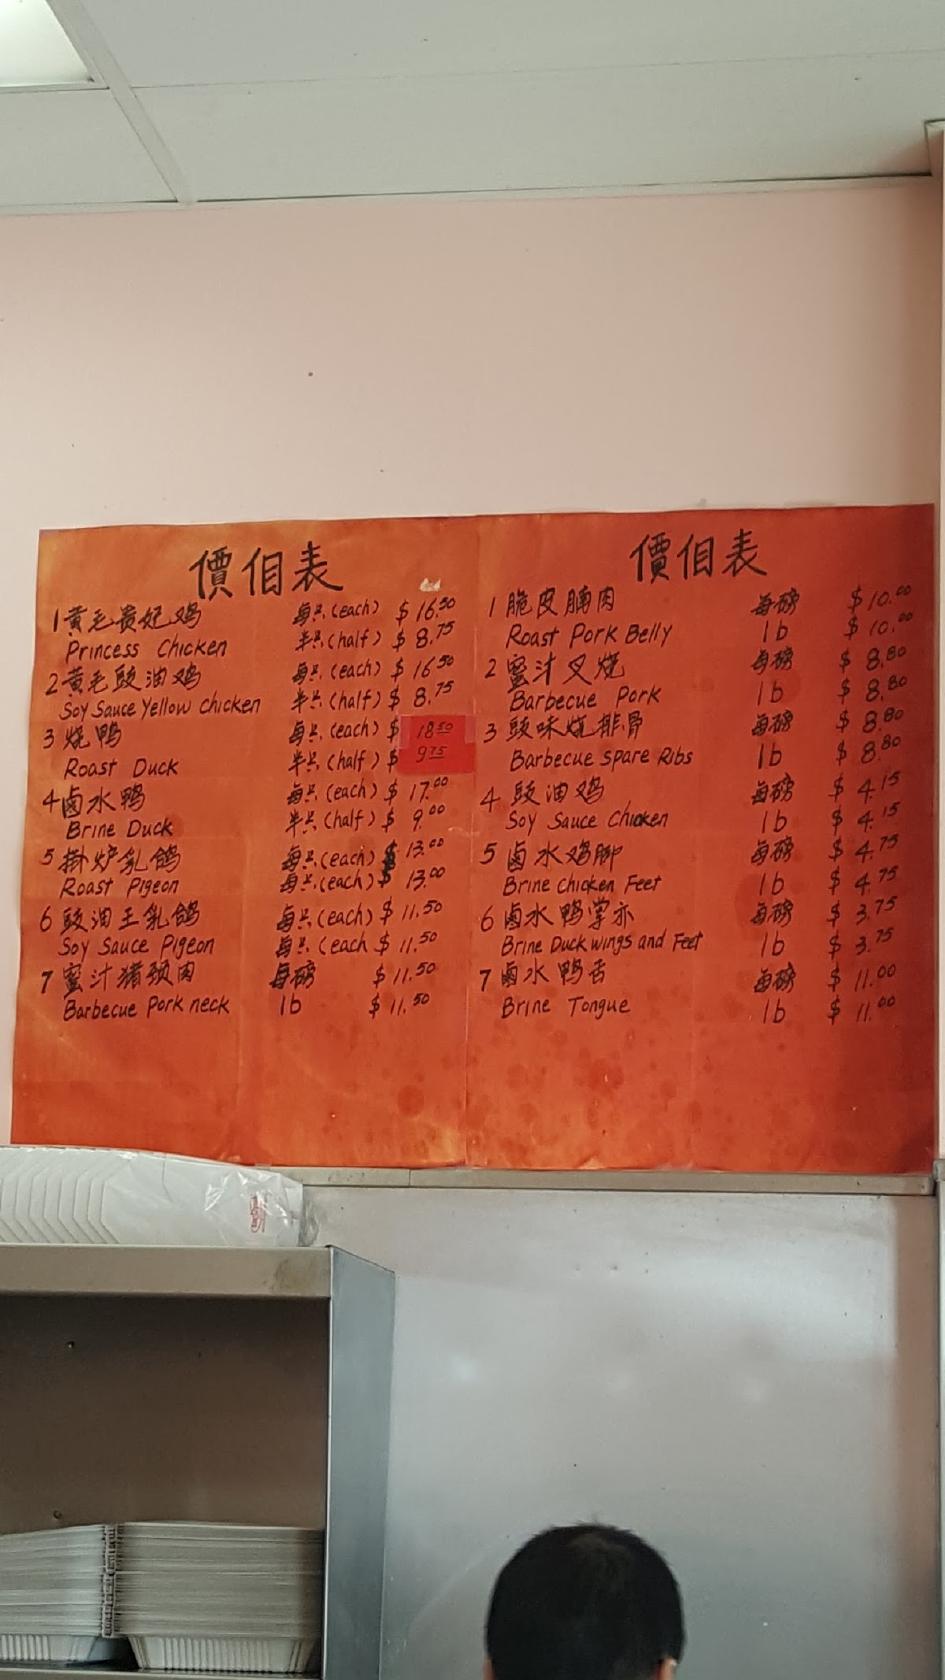 價佀表
1 黄毛贵妃鸡 每只(each) $ 16.50
Princess Chicken 半只(half) $ 8.75
2 黄毛豉油鸡 每只(each) $ 16.50
Soy Sauce Yellow chicken 半只(half) $ 8.75
3 烧鸭 每只(each) $ 18.50
Roast Duck 半只(half) $ 9.75
4 卤水鸭 每只(each) $ 17.00
Brine Duck 半只(half) $ 9.00
5 掛炉乳鸽 每只(each) $ 13.00
Roast Pigeon 每只(each) $ 13.00
6 豉油王乳鸽 每只(each) $ 11.50
Soy Sauce Pigeon 每只(each $ 11.50
7 蜜汁猪颈肉 每磅 $ 11.50
Barbecue Pork neck 1b $ 11.50
價佀表
1 脆皮腩肉 每磅 $ 10.00
Roast Pork Belly 1b $ 10.00
2 蜜汁叉烧 每磅 $ 8.80
Barbecue Pork 1b $ 8.80
3 豉味烧排骨 每磅 $ 8.80
Barbecue Spare Ribs 1b $ 8.80
4 豉油鸡 每磅 $ 4.15
Soy Sauce Chicken 1b $ 4.15
5 卤水鸡脚 每磅 $ 4.75
Brine Chicken Feet 1b $ 4.75
6 卤水鸭掌亦 每磅 $ 3.75
Brine Duck wings and Feet 1b $ 3.75
7 卤水鸭舌 每磅 $ 11.00
Brine Tongue 1b $ 11.00